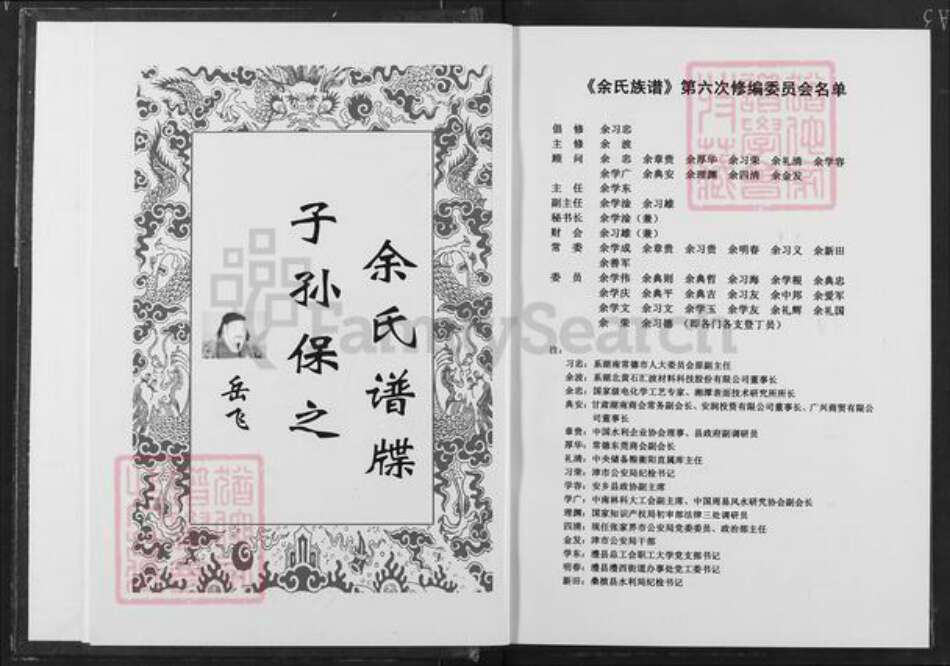 余氏谱牒
子孙保之
岳飞
《余氏族谱》第六次修编委员会名单
倡 修 余习忠
主 修 余 波
顾 问 余 忠 余章贵 余厚华 余习荣 余礼清 余学容
余学广 余典安 余理渊 余四清 余金发
主 任 余学东
副主任 余学淦 余习雄
秘书长 余学淦（兼）
财 会 余习雄（兼）
常 委 余学成 余章贵 余习贵 余明春 余习义 余新田
余善军
委 员 余学伟 余典则 余典哲 余习海 余学稷 余典忠
余学庆 余典平 余典吉 余习友 余中邦 余爱军
余学文 余习文 余学玉 余学友 余礼辉 余礼国
余 荣 余习德 （即各门各支登丁员）
注：
习忠：系湖南常德市人大委员会原副主任
余波：系湖北黄石汇波材料科技股份有限公司董事长
余忠：国家级电化学工艺专家、湘潭表面技术研究所所长
典安：甘肃湖南商会常务副会长、安润投资有限公司董事长、广兴商贸有限公
司董事长
章贵：中国水利企业协会理事、县政府副调研员
厚华：常德东莞商会副会长
礼清：中央储备粮衡阳直属库主任
习荣：津市公安局纪检书记
学容：安乡县政协副主席
学广：中南林科大工会副主席、中国周易风水研究协会副会长
理渊：国家知识产权局初审部法律三处调研员
四清：现任张家界市公安局党委委员、政治部主任
金发：津市公安局干部
学东：澧县总工会职工大学党支部书记
明春：澧县澧西街道办事处党工委书记
新田：桑植县水利局纪检书记
FamilySearch